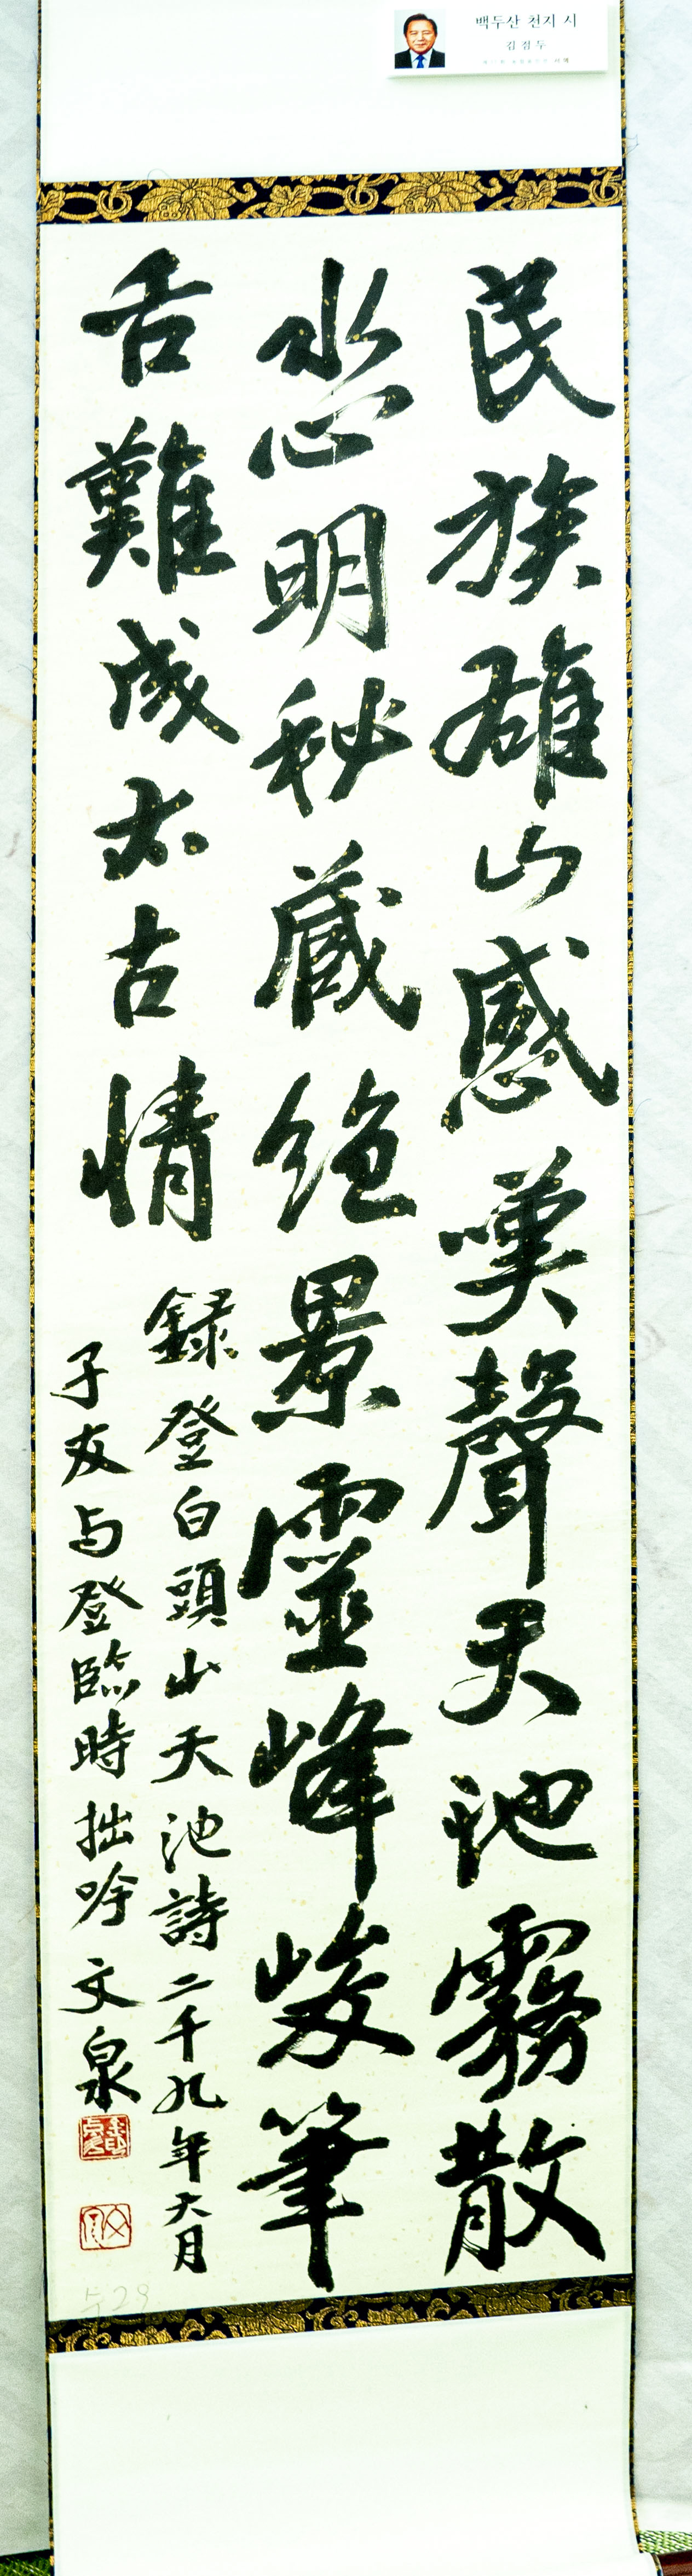 백두산 천지 시
김정두
民族雄山感嘆聲天池霧散
水心明秘藏絶景靈峰峻筆
舌難成太古情
録登白頭山天池詩二千九年六月
子友与登臨時拙吟文泉